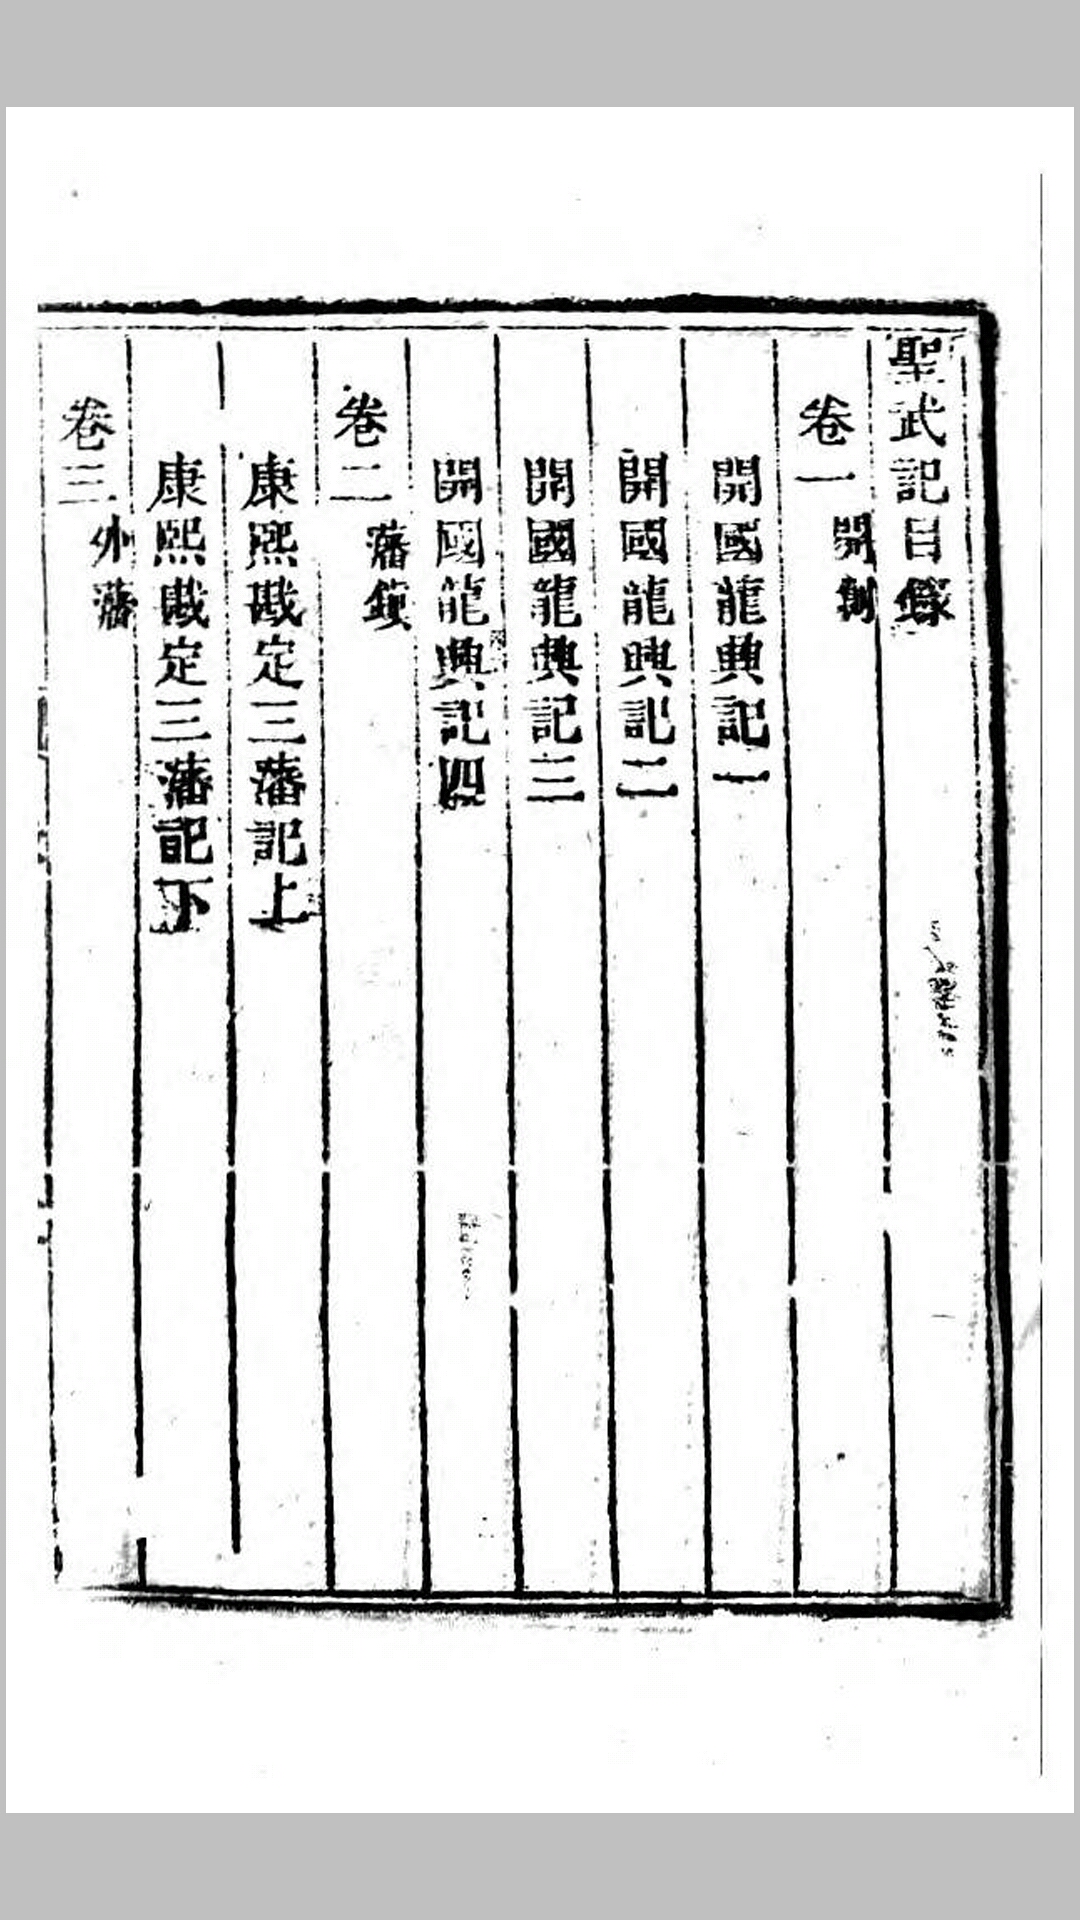 聖武記目錄
卷一 開創
開國龍興記一
開國龍興記二
開國龍興記三
開國龍興記四
卷二 藩鎮
康熙戡定三藩記上
康熙戡定三藩記下
卷三 外藩